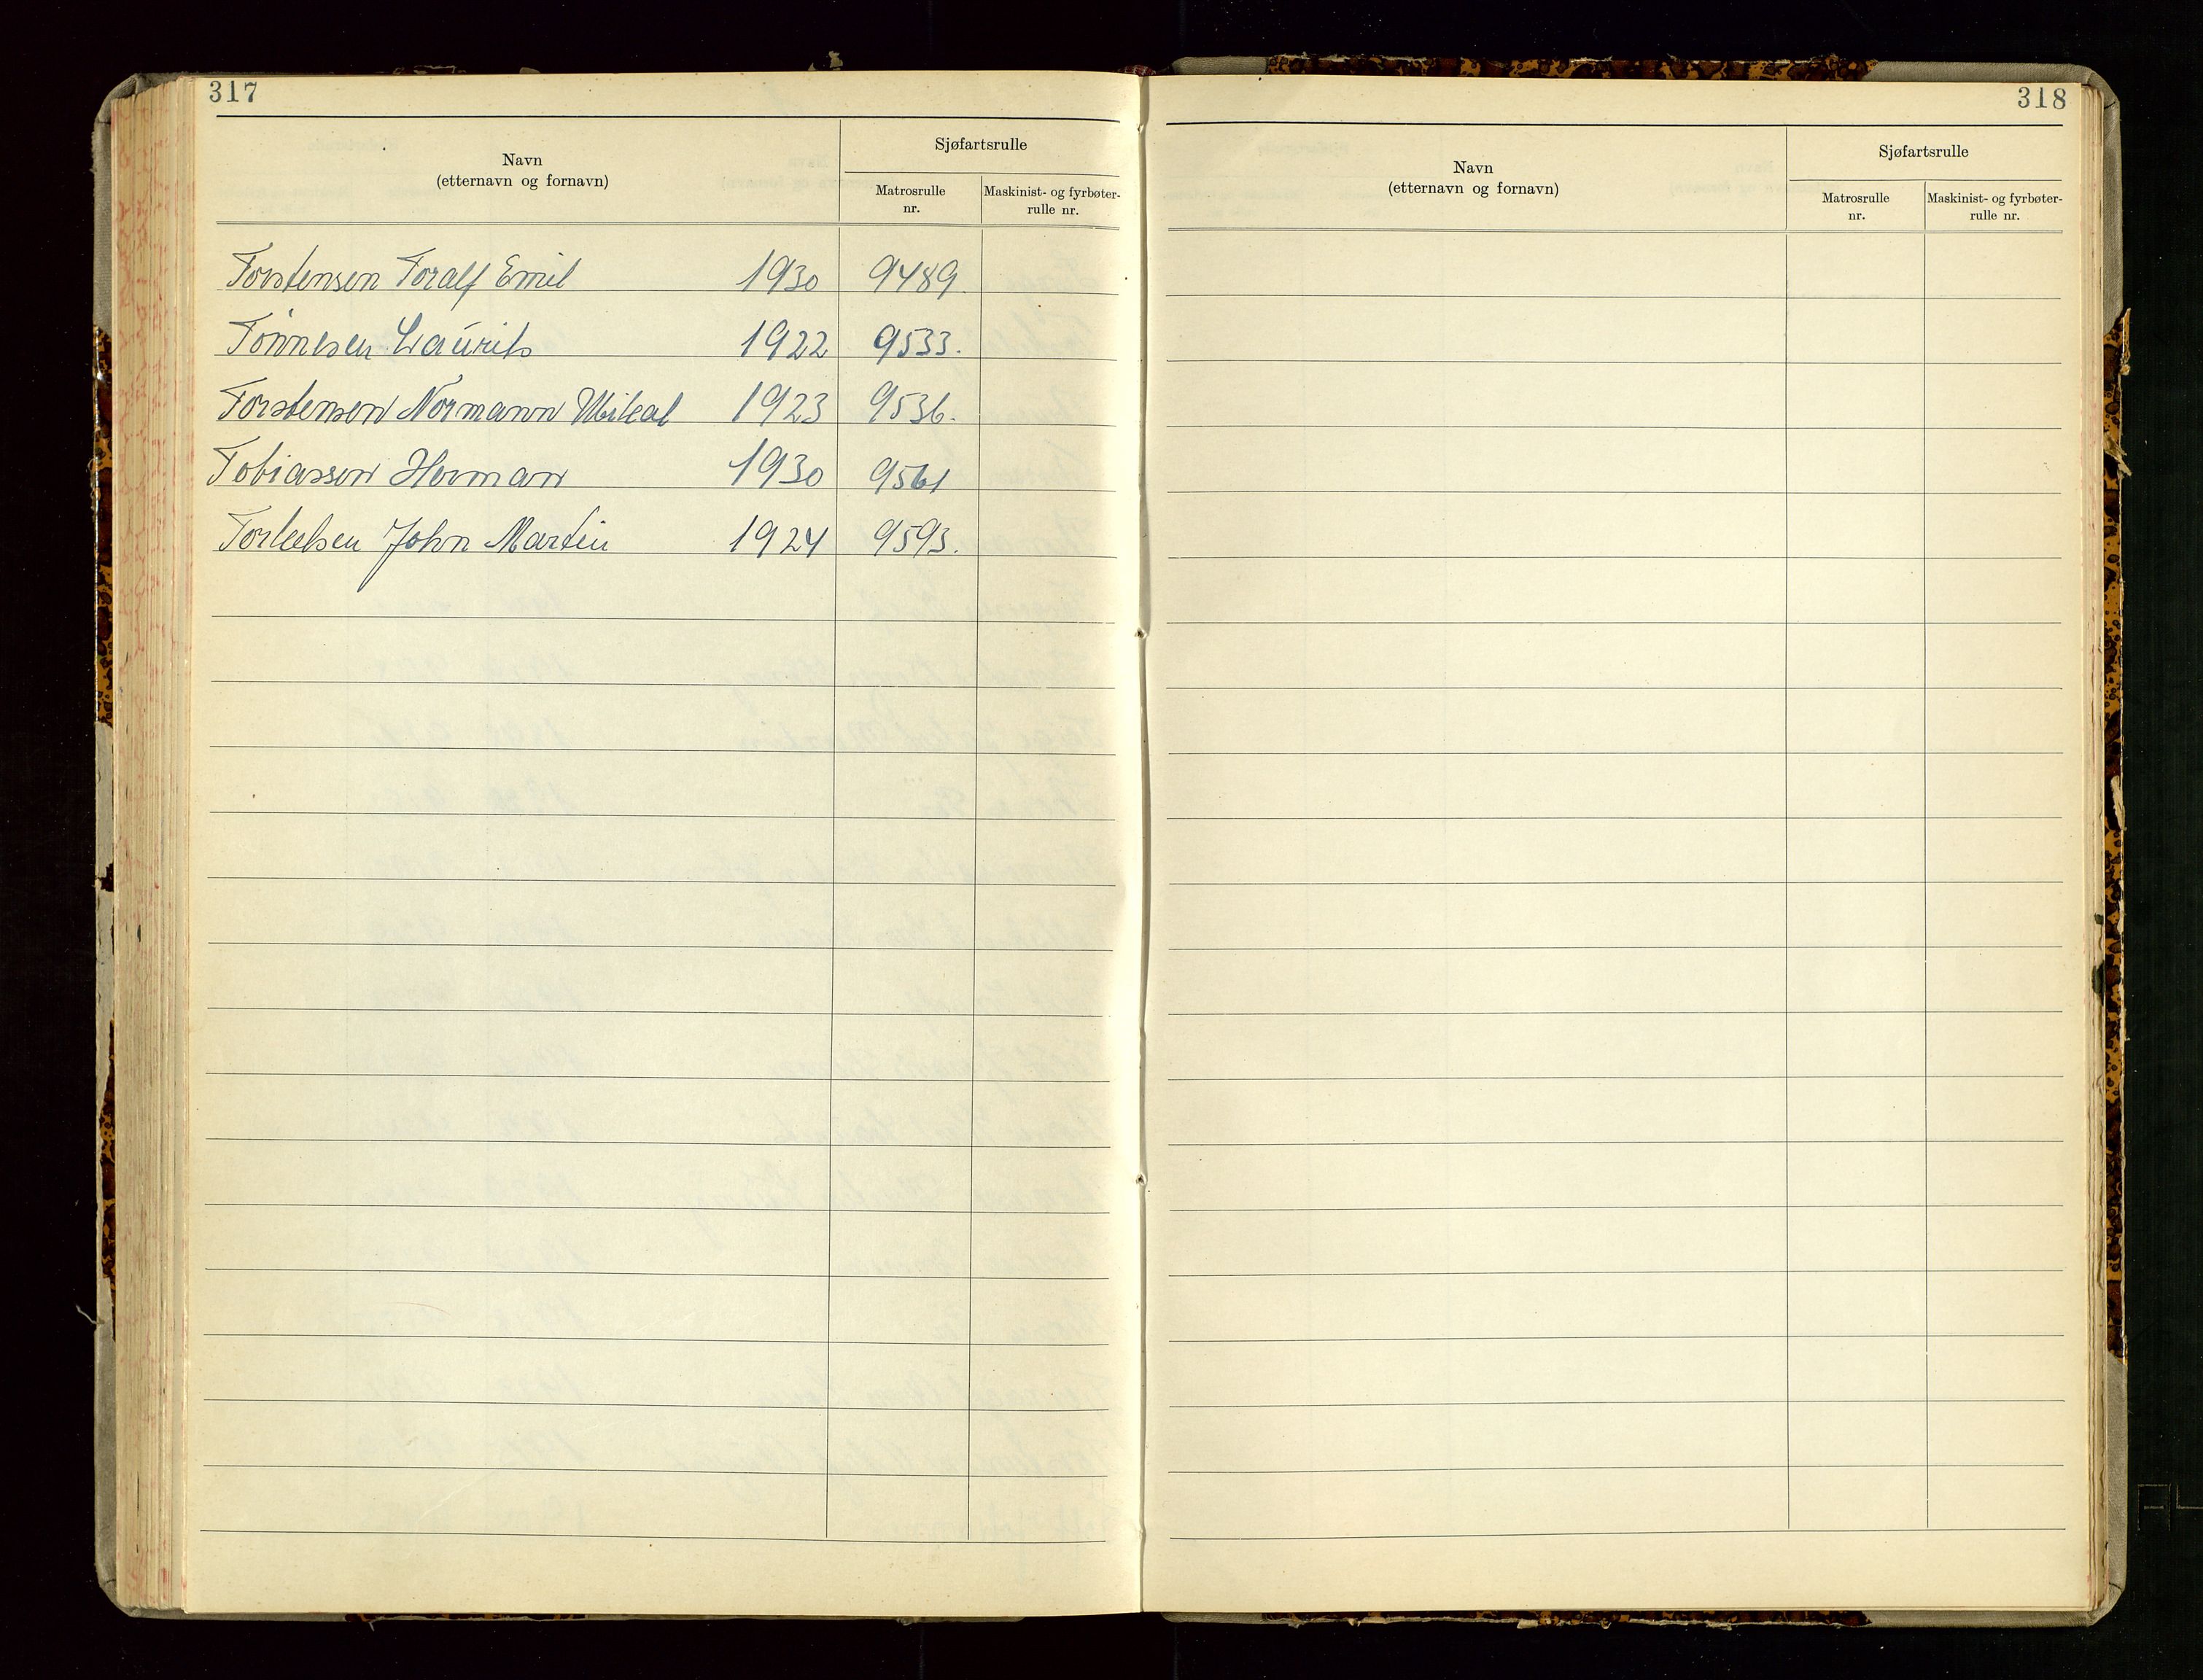 317
Navn
(etternavn og fornavn)
Sjøfartsrulle
Matrosrulle
nr.
Maskinist- og fyrbøter-
rulle nr.
Torstensen Toralf Emil 1930 9489.
Tønnesen Laurits 1922 9533.
Torstensen Normann Mikal 1923 9536.
Tobiassen Herman 1930 9561
Torleifsen John Martin 1924 9593.
318
Navn
(etternavn og fornavn)
Sjøfartsrulle
Matrosrulle
nr.
Maskinist- og fyrbøter-
rulle nr.